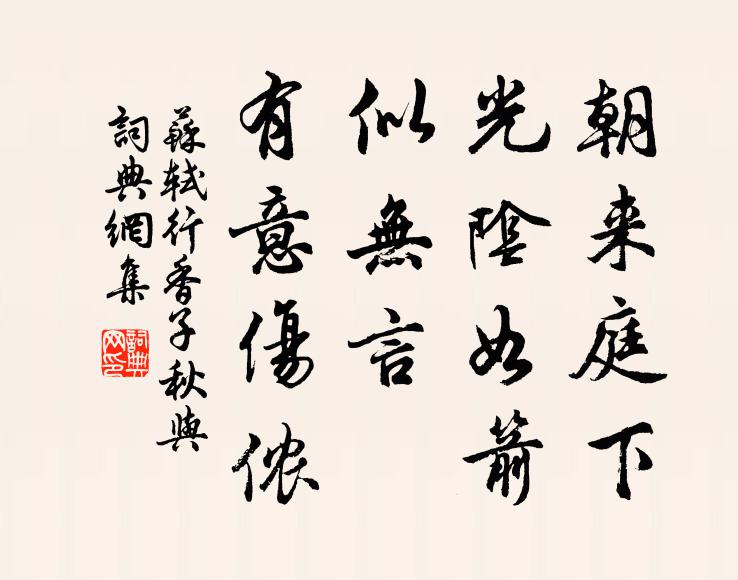 朝来庭下
光陰如箭
似無言
有意傷侬
蘇軾行香子秋與
詞典網集
詞典網印